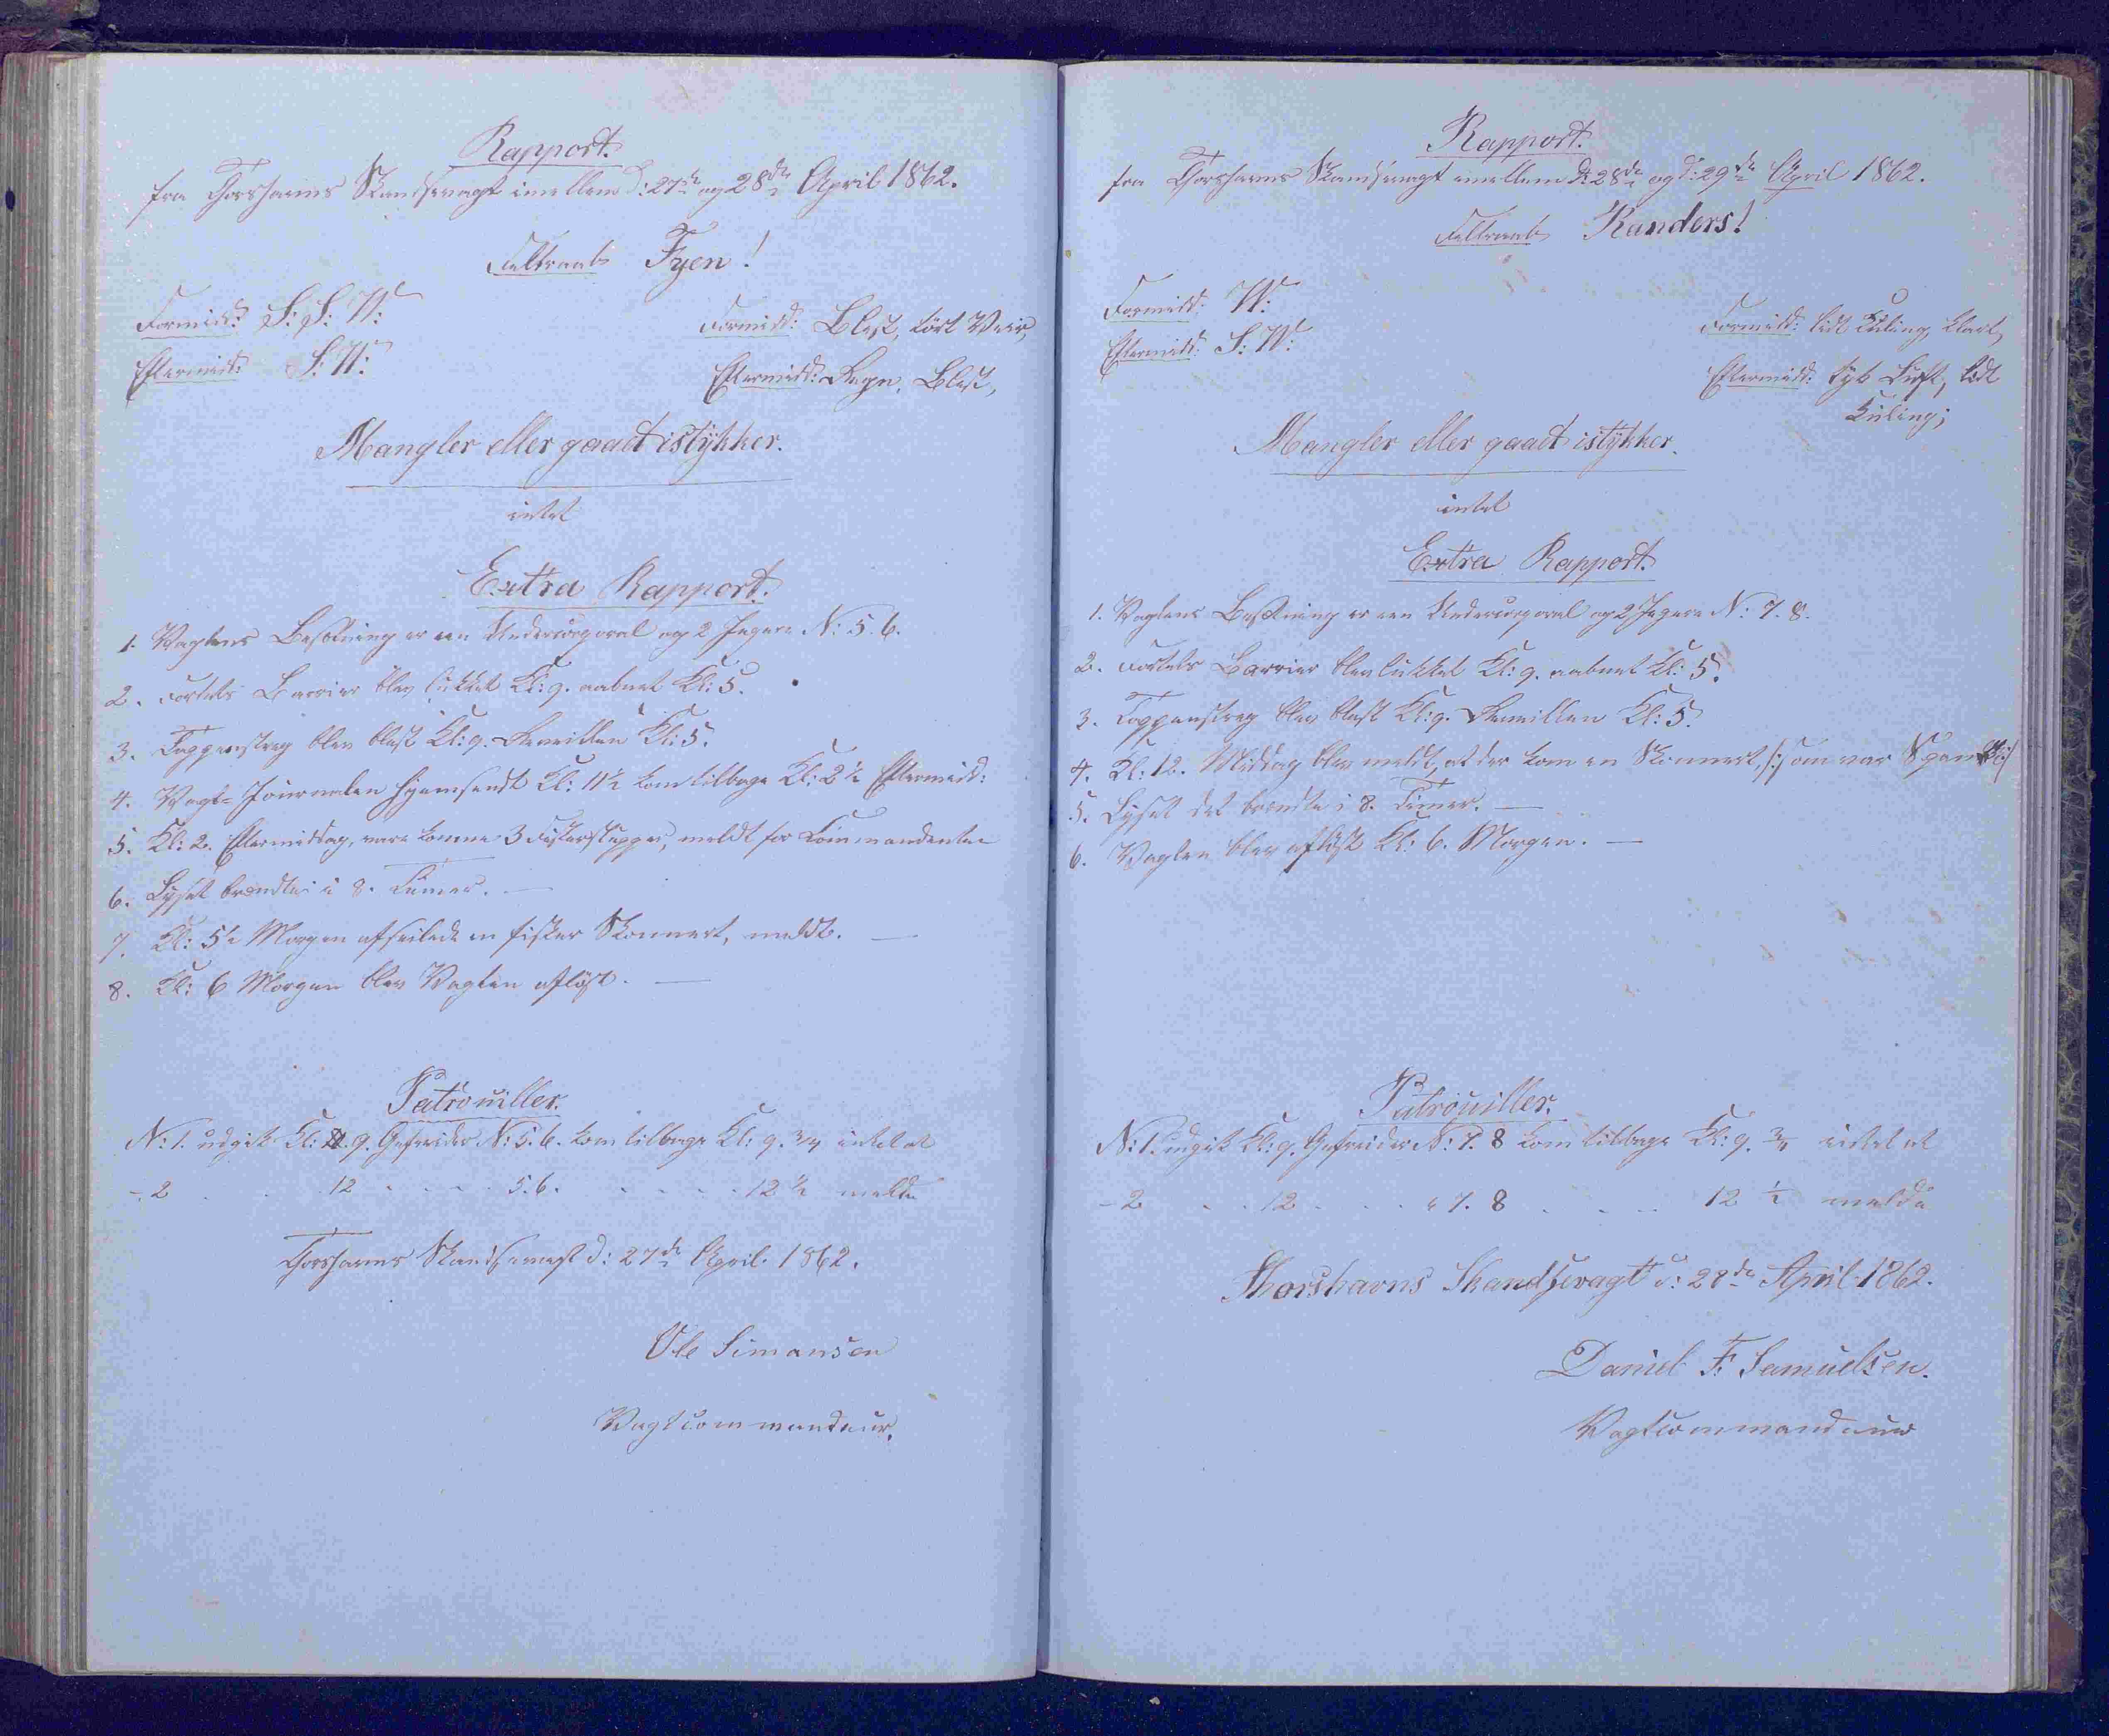 Rapport.
fra Thorshavns Skandsevagt imellem d: 27de og 28de April 1862.
Feltraab Fyen!
Formidd: S: S: W:
Formidd: Blæst, tørt Veir,
Eftermidd: S: W:
Eftermidd: Regn, Blæst,
Mangler eller gaaet istykker.
intet
Extra Rapport.
1. Vagtens Besætning er een Undercorporal og 2 Jegere N: 5. 6.
2. Fortets Barrier blev lukket Kl: 9. aabnet Kl: 5.
3. Tappenstreg blev blæst Kl: 9. Reveillen Kl: 5.
4. Vagt=Journalen hjemsendt Kl: 11½ kom tilbage Kl: 2½ Eftermidd:
5. Kl: 2. Eftermiddag, vare komne 3 Fiskerslupper, meldt for Commandanten
6. Lyset brændte i 8. Timer. —
7. Kl: 5½ Morgen afseilede en fisker Skonnert, meldt. —
8. Kl: 6 Morgen blev Vagten afløst. —
Patrouiller.
N: 1. udgik Kl: 9. Gefreider N: 5. 6. kom tilbage Kl: 9. ¾ intet at
- 2 . . 12 . . . . 5. 6. . . . . 12 ½ melde
Thorshavns Skandsevagt d: 27de April 1862.
Ole Simonsen
Vagtcommandeur.
Rapport.
fra Thorshavns Skandsevagt imellem d: 28de og d: 29de April 1862.
Feltraab Randers!
Formidd: W:
Formidd: lidt Kuling, klart,
Eftermidd: S: W:
Eftermidd: tyk Luft, lidt
Kuling;
Mangler eller gaaet istykker.
intet
Extra Rapport.
1. Vagtens Besætning er een Undercorporal og 2 Jegere N: 7. 8.
2. Fortets Barrier blev lukket Kl: 9. aabnet Kl: 5.
3. Tappenstreg blev blæst Kl: 9. Reveillen Kl: 5.
4. Kl: 12. Middag blev meldt, at der kom en Skonnert, /: som var Spansk :/
5. Lyset det brændte i 8. Timer. —
6. Vagten blev afløst Kl: 6. Morgen. —
Patrouiller.
N: 1. udgik Kl: 9. Gefreider N: 7. 8 kom tilbage Kl: 9. ¾ intet at
- 2 . . 12 . . . " 7. 8 . . . 12 ½ melde
Thorshavns Skandsevagt d: 28de April 1862.
Daniel F. Samuelsen.
Vagtcommandeur